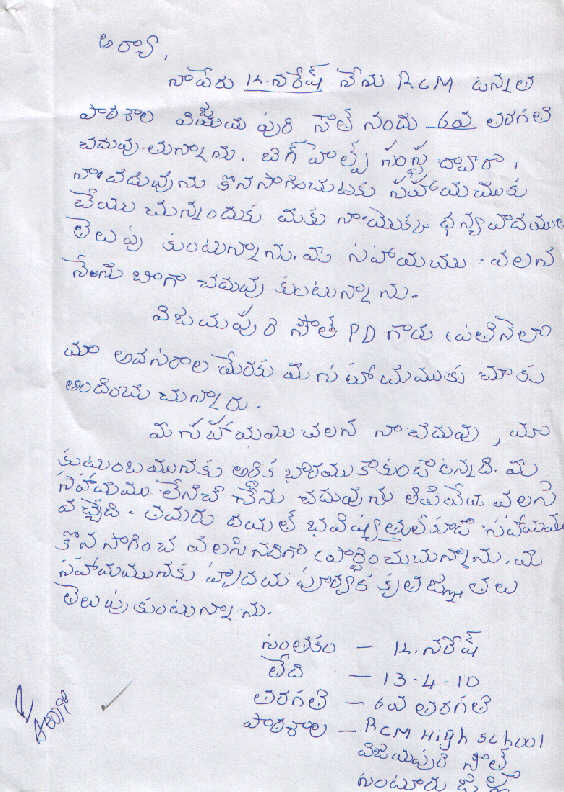 ఆర్యా,
నాపేరు K. నరేష్ నేను RCM ఉన్నత
పాఠశాల విజయ పురి సౌత్ నందు 6వ తరగతి
చదువు చున్నాను. బిగ్ హెల్ప్ సంస్థ ద్వారా,
నాచదువును కొనసాగించుటకు సహాయముకు
చేయు చున్నందుకు మీకు నాయొక్క ధన్యవాదములు
తెలుపు కుంటున్నాను. మీ సహాయము వలన
నేను బాగా చదువు కుంటున్నాను.
విజయపురి సౌత్ PD గారు ప్రతినెలా
మా అవసరాల మేరకు మీ సహాయముకు మాకు
అందించు చున్నారు.
మీ సహాయము వలన నా చదువు, మా
కుటుంబమునకు అధిక భారము కాకుండా ఉన్నది. మీ
సహాయము లేనిచో నేను చదువును ఆపివేయ వలసి
వచ్చేది. తమరు దయతో భవిష్యత్తులో కూడా సహాయము
కొనసాగించ వలసినదిగా ప్రార్థించుచున్నాను. మీ
సహాయమునకు హృదయ పూర్వక కృతజ్ఞతలు
తెలుపుకుంటున్నాను.
సంతకం - K. నరేష్
తేది - 13-4-10
తరగతి - 6వ తరగతి
పాఠశాల - RCM High school
విజయపురి సౌత్
గుంటూరు జిల్లా